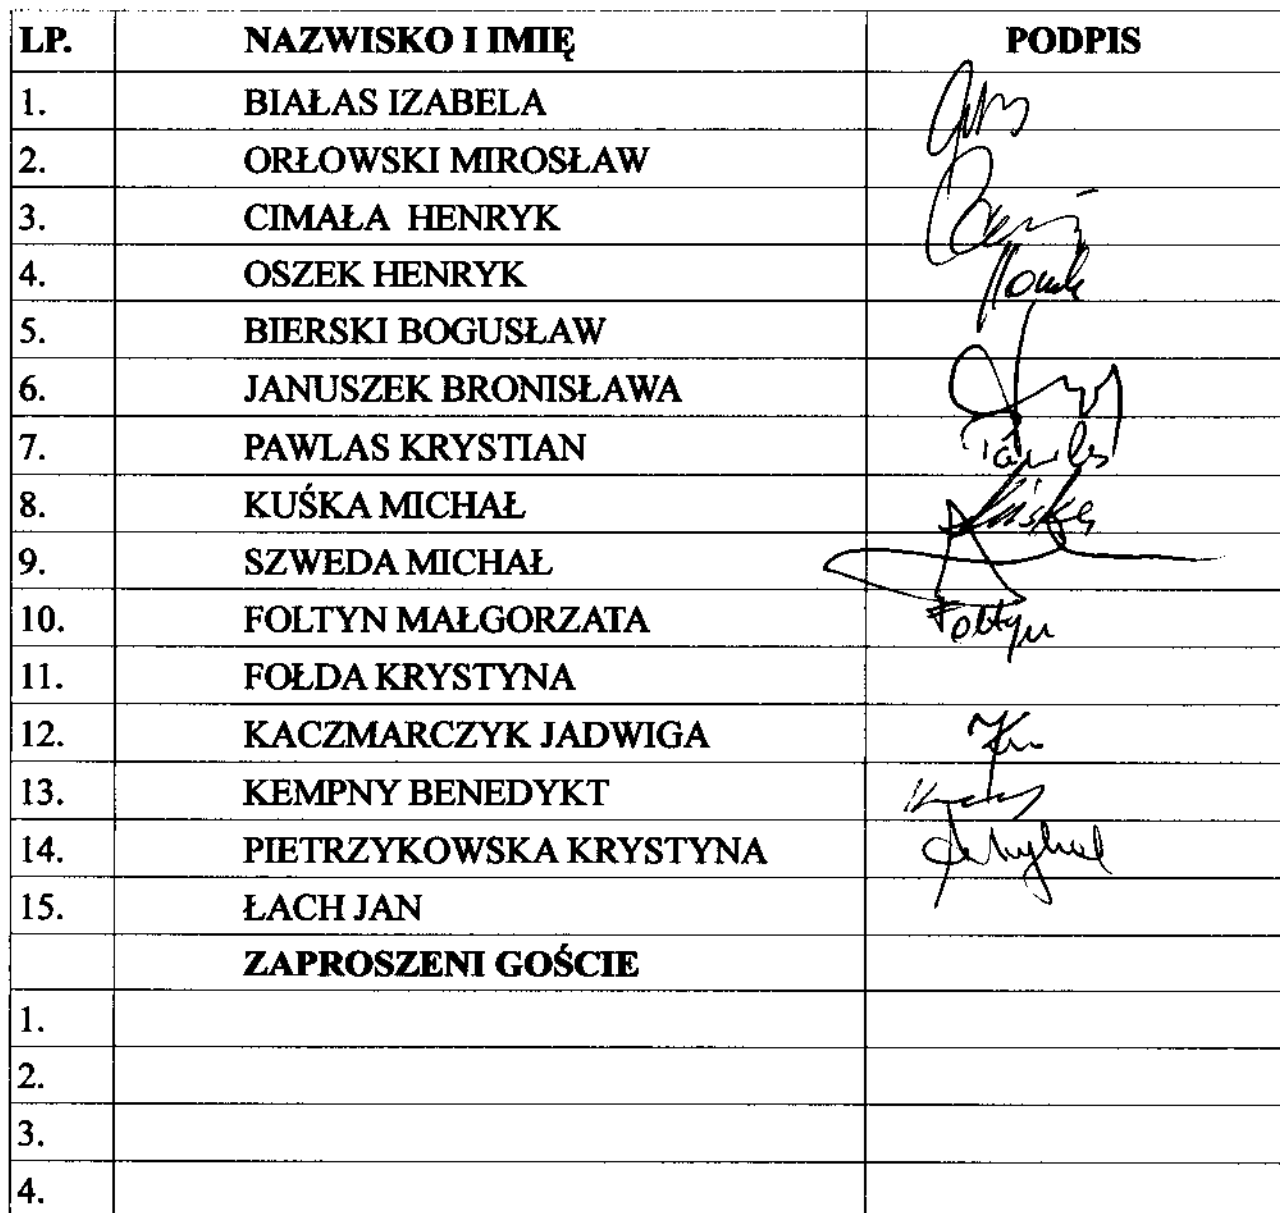 LP. NAZWISKO I IMIĘ PODPIS
1. BIAŁAS IZABELA
2. ORŁOWSKI MIROSŁAW
3. CIMAŁA HENRYK
4. OSZEK HENRYK
5. BIERSKI BOGUSŁAW
6. JANUSZEK BRONISŁAWA
7. PAWLAS KRYSTIAN
8. KUŚKA MICHAŁ Kuśka
9. SZWEDA MICHAŁ
10. FOLTYN MAŁGORZATA Foltyn
11. FOŁDA KRYSTYNA
12. KACZMARCZYK JADWIGA
13. KEMPNY BENEDYKT
14. PIETRZYKOWSKA KRYSTYNA
15. ŁACH JAN
ZAPROSZENI GOŚCIE
1.
2.
3.
4.